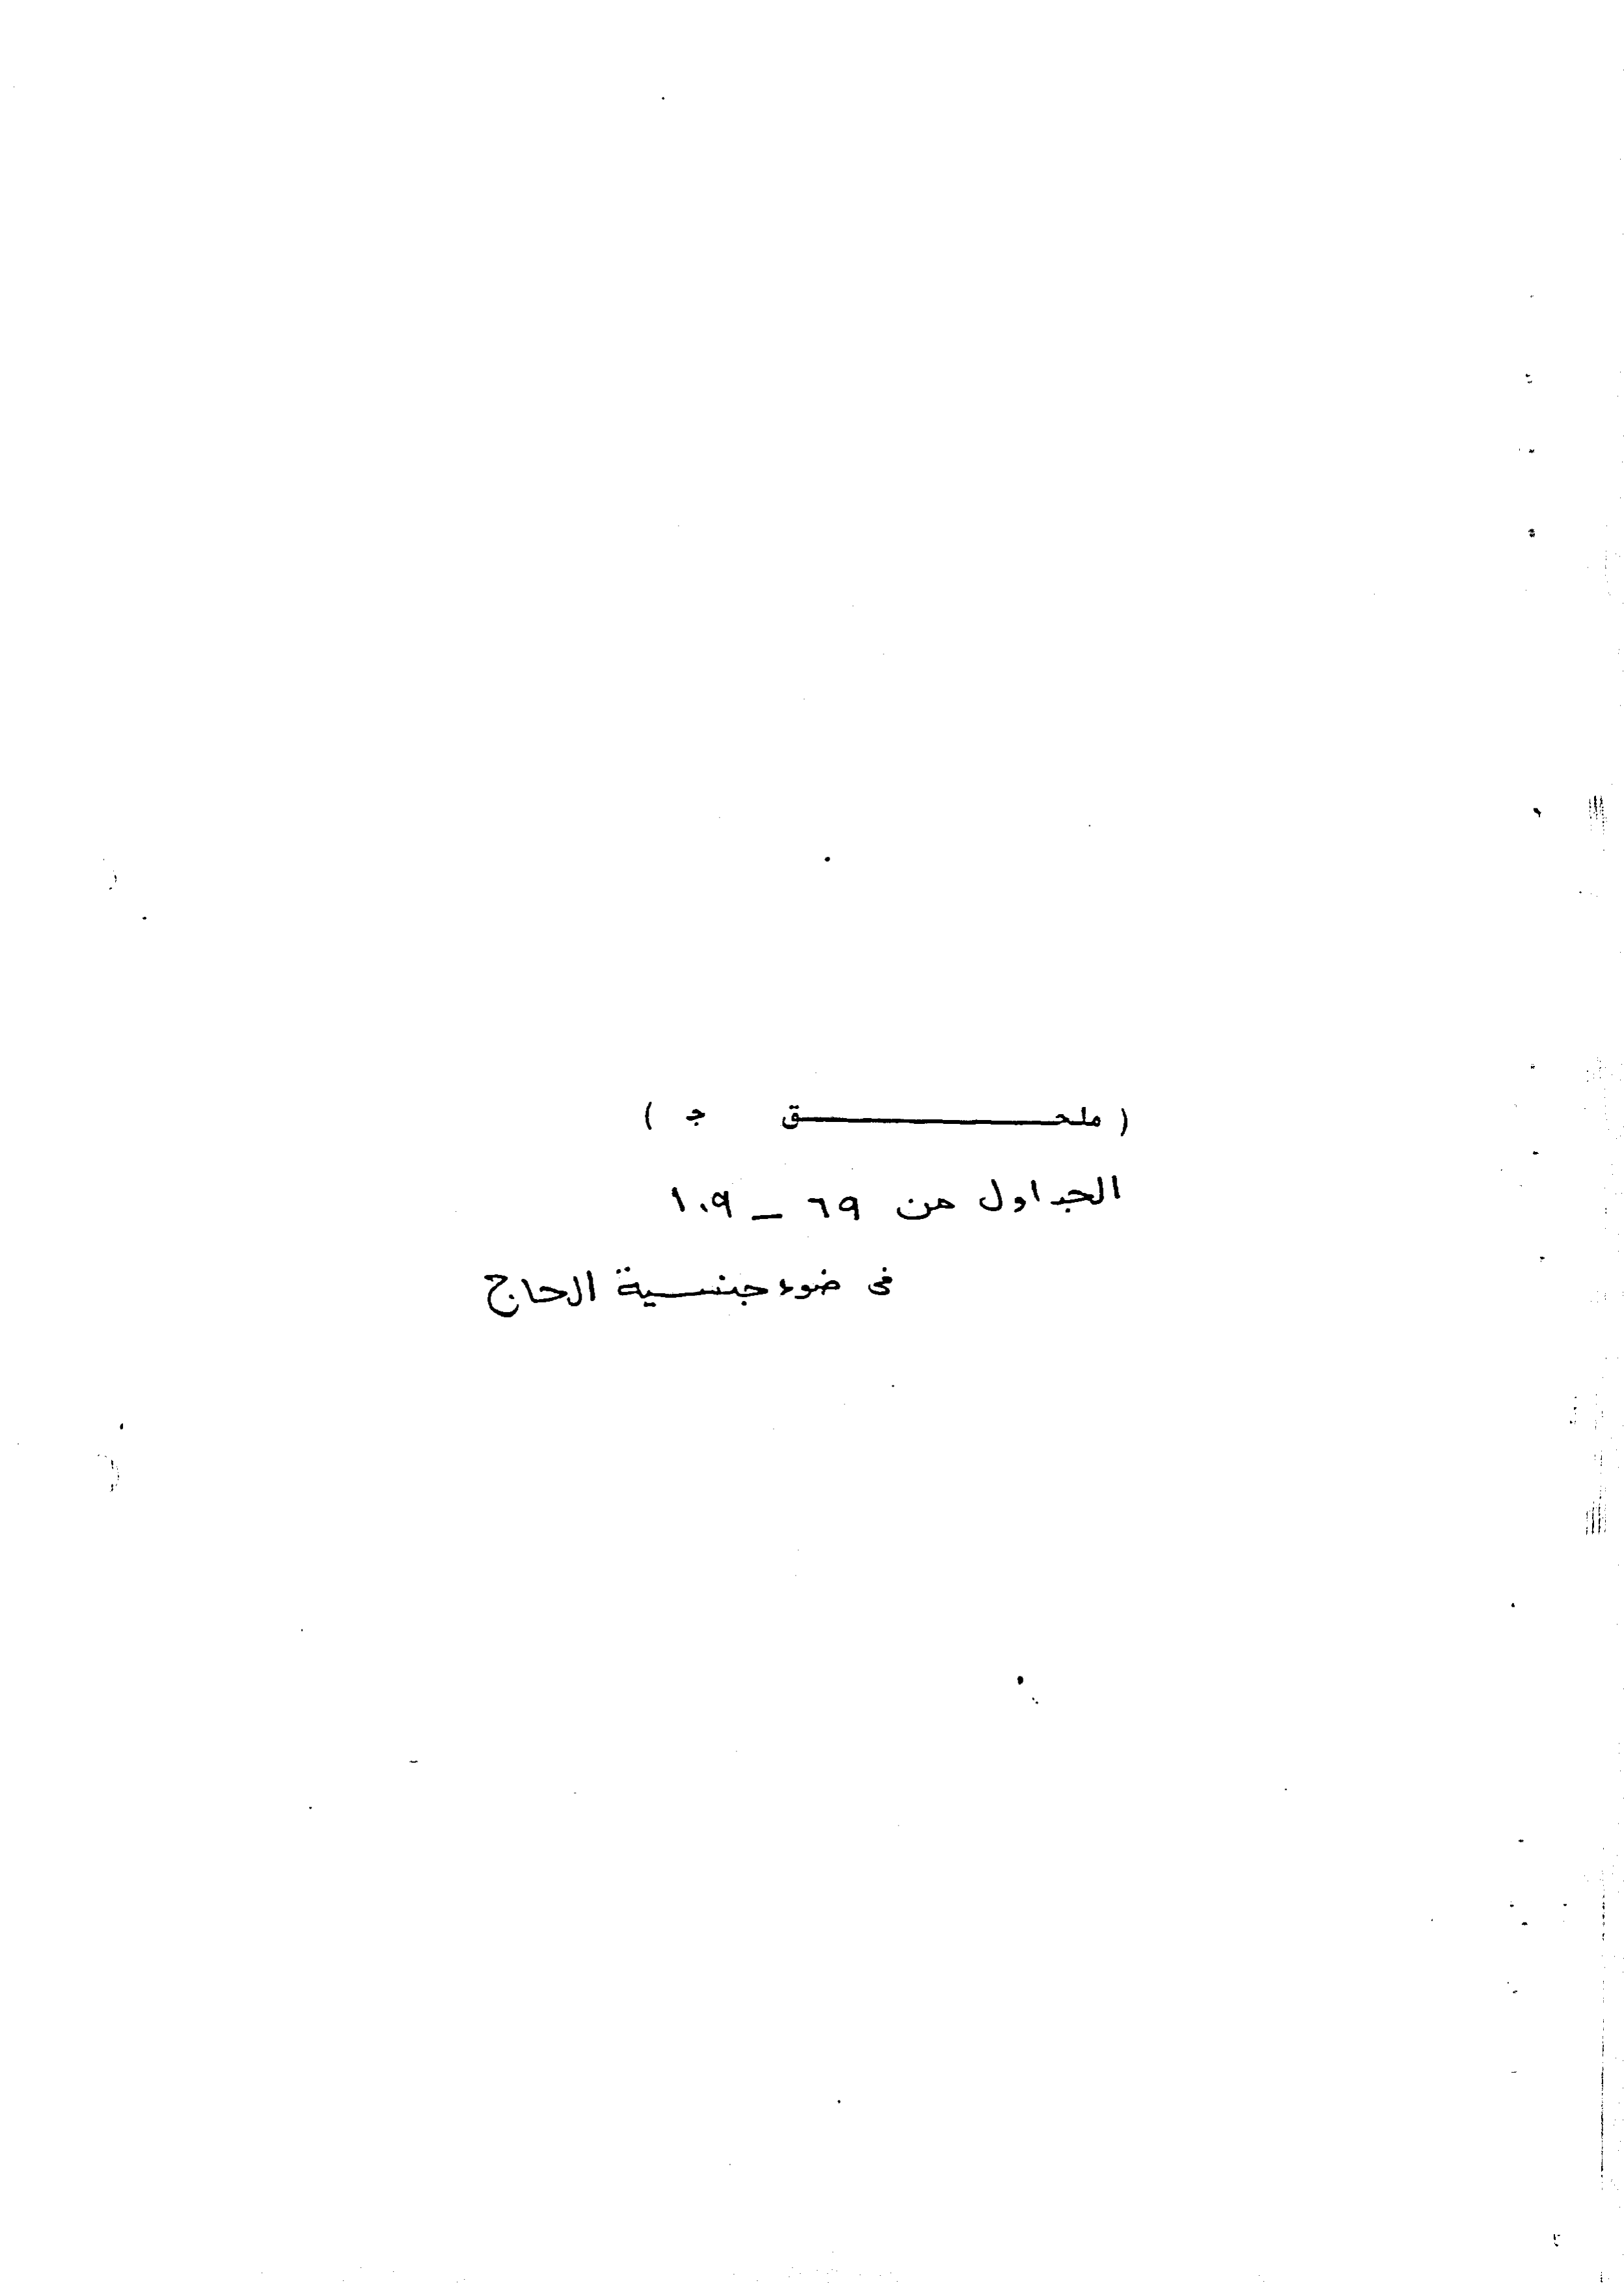 ( ملحـــــــــــق ج )
الجداول من ٦٩ ـ ١٠٩
فى ضوء جنسية الحاج